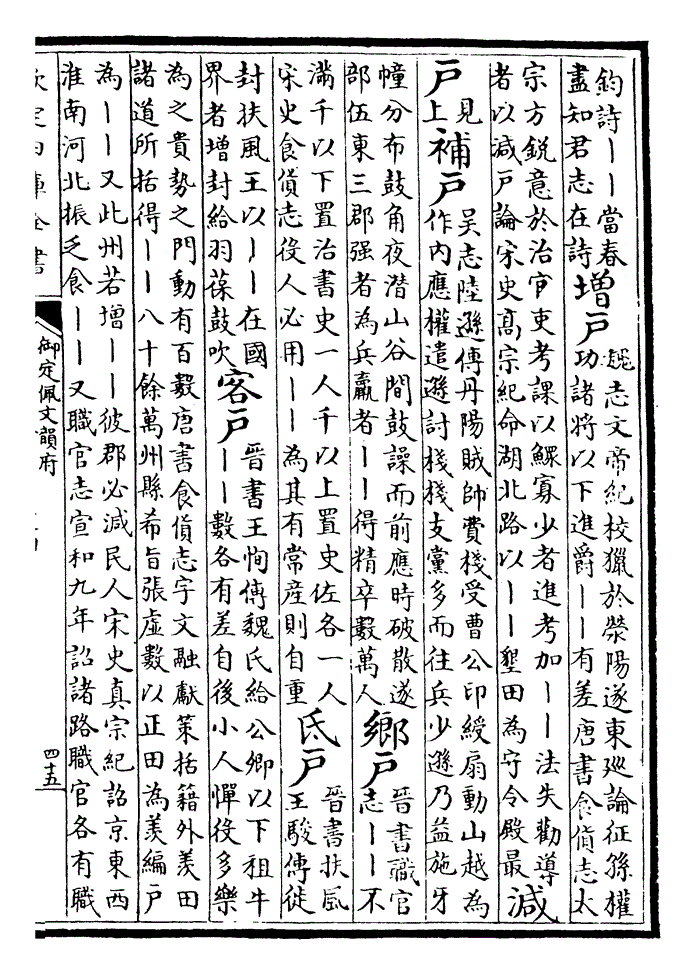 鈞詩丨丨當春
盡知君志在詩
增戶
魏志文帝紀校獵於滎陽遂東廵論征孫權
功諸將以下進爵丨丨有差唐書食貨志太
宗方銳意於治官吏考課以鰥寡少者進考加丨丨法失勸導
者以減戶論宋史高宗紀命湖北路以丨丨墾田為守令殿最
減
戶
見
上
補戶
吳志陸遜傳丹陽賊帥費棧受曹公印綬扇動山越為
作内應權遣遜討棧棧支黨多而往兵少遜乃益施牙
幢分布鼓角夜潛山谷間鼓譟而前應時破散遂
部伍東三郡强者為兵羸者丨丨得精卒數萬人
鄉戶
晉書職官
志丨丨不
滿千以下置治書史一人千以上置史佐各一人
宋史食貨志役人必用丨丨為其有常產則自重
氐戶
晉書扶風
王駿傳徙
封扶風王以丨丨在國
界者增封給羽葆鼓吹
客戶
晉書王恂傳魏氏給公卿以下租牛
丨丨數各有差自後小人憚役多樂
為之貴勢之門動有百數唐書食貨志宇文融獻策括籍外羨田
諸道所括得丨丨八十餘萬州縣希旨張虛數以正田為羨編戶
為丨丨又此州若增丨丨彼郡必減民人宋史真宗紀詔京東西
淮南河北振乏食丨丨又職官志宣和九年詔諸路職官各有職
欽定四庫全書
御定佩文韻府
四十五